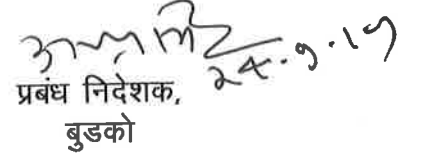 24.9.19
प्रबंध निदेशक,
बुडको